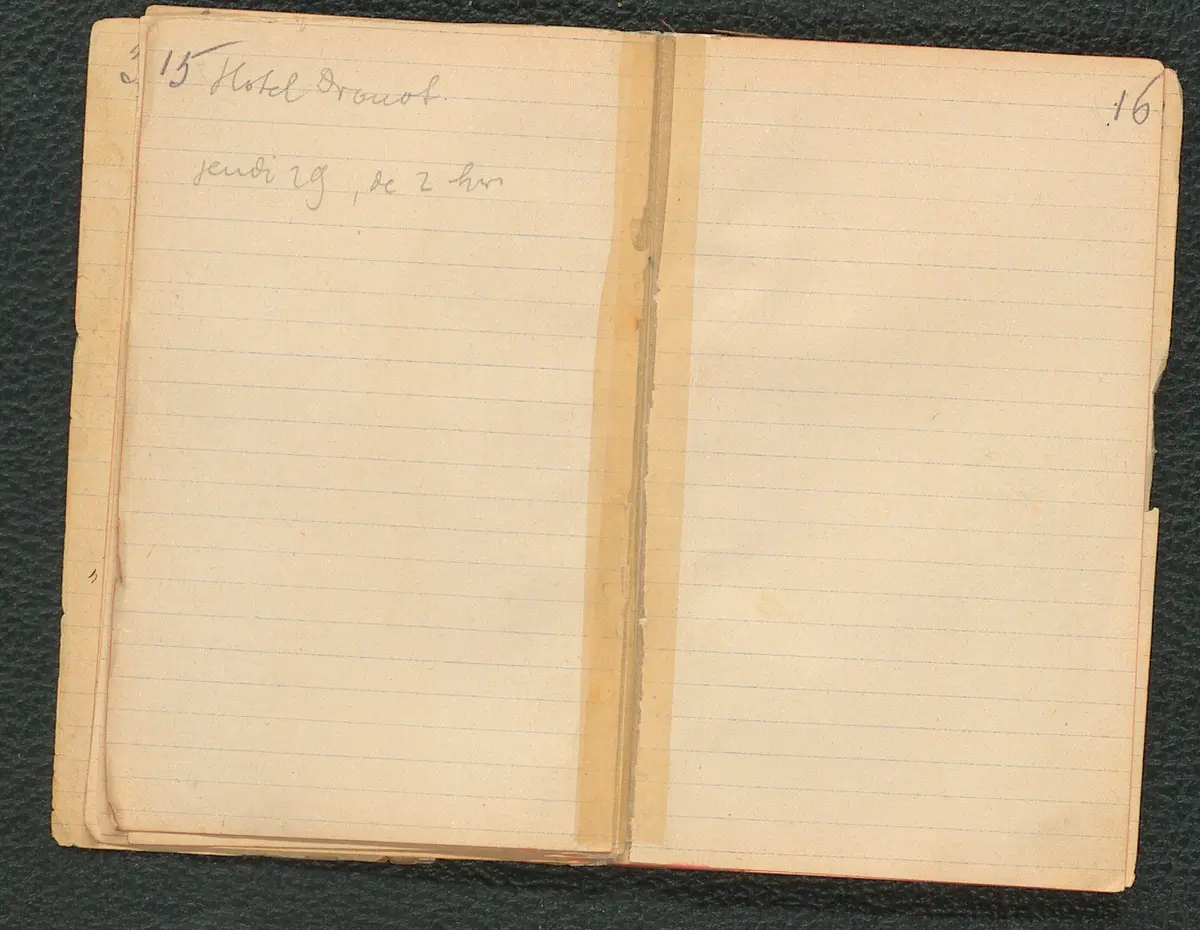 15 Hotel Drouot
jeudi 29, de 2 hrs
16